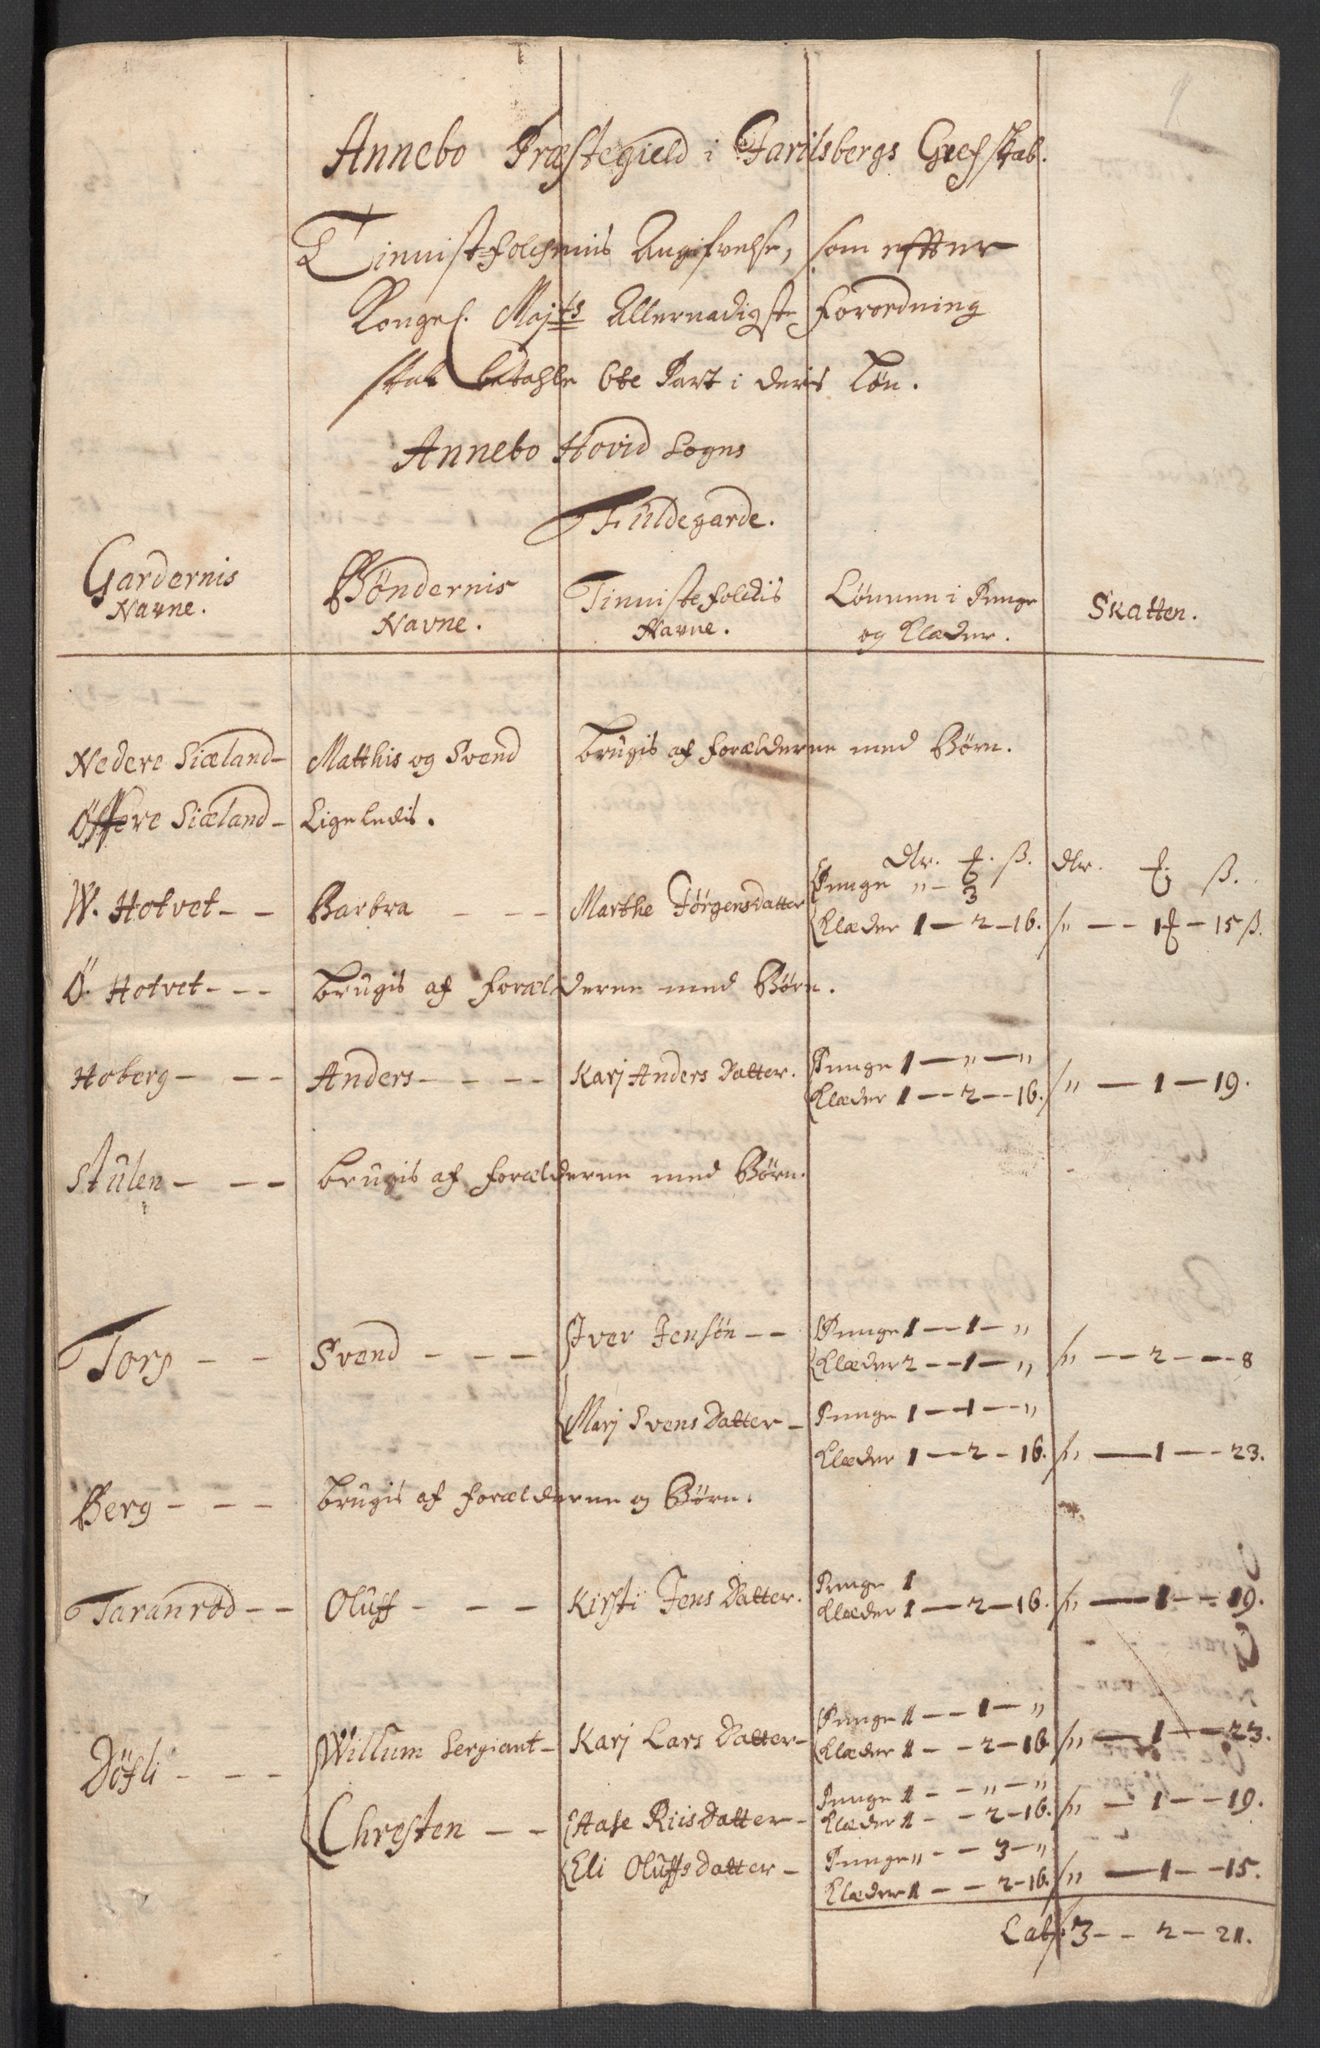 Annebo Præstegield i Jarlsbergs Grefskab.
Tiennistfolchenis Angifvelse, som effter
Kongel. Majts Allernadigste Forordning
skal betahle 6te Part i deris Løn.
Annebo Hovid Sogns
Fuldegarde.
Gardernis Navne. Bøndernis Navne. Tienniste folckis Navne. Lønnen i Penge og Klæder. Skatten.
Nedere Siæland - Matthis og Svend brugis af forælderne med Børn.
Øffere Siæland - Ligeledis.
Dlr. ß. dlr. ß.
W. Hotvet - - Barbra - - - Marthe Jørgensdatter Penge " - 3
Klæder 1 - 2 - 16. " - - 1 - 15 ß.
Ö. Hotvet - - - brugis af forælderne med Børn.
Hoberg - - - Anders - - - - Karj Anders Datter. Penge 1 - " - "
Klæder 1 - - 2 - - 16. " - 1 - 19.
Stulen - - - brugis af forælderne med Børn.
Torp - - Svend - - - Iver Jensøn - - Penge 1 - - 1 - "
Klæder 2 - - 1 - " " - - 2 - - 8
Marj Svens Datter - Penge 1 - 1 - "
Klæder 1 - - 2 - 16. " - 1 - - 23.
Berg - - - brugis af forælderne og Børn.
Taranrød - - Oluff - - - Kirsti Jens Datter. Penge 1
Klæder 1 - - 2 - 16. " - 1 - - 19.
Döfli - - - Willum Sergiant - Karj Lars Datter - Penge 1 - - 1 - "
Klæder 1 - - 2 - 16 " - 1 - - 23.
Chresten - - Aase Riis Datter - Penge 1 - - " - "
Klæder 1 - - 2 - 16. " - 1 - - 19.
Eli Oluffs datter - Penge " - - 3 - "
Klæder 1 - - 2 - 16. " - 1 - - 15.
Lat. 3 - - 2 - 21.